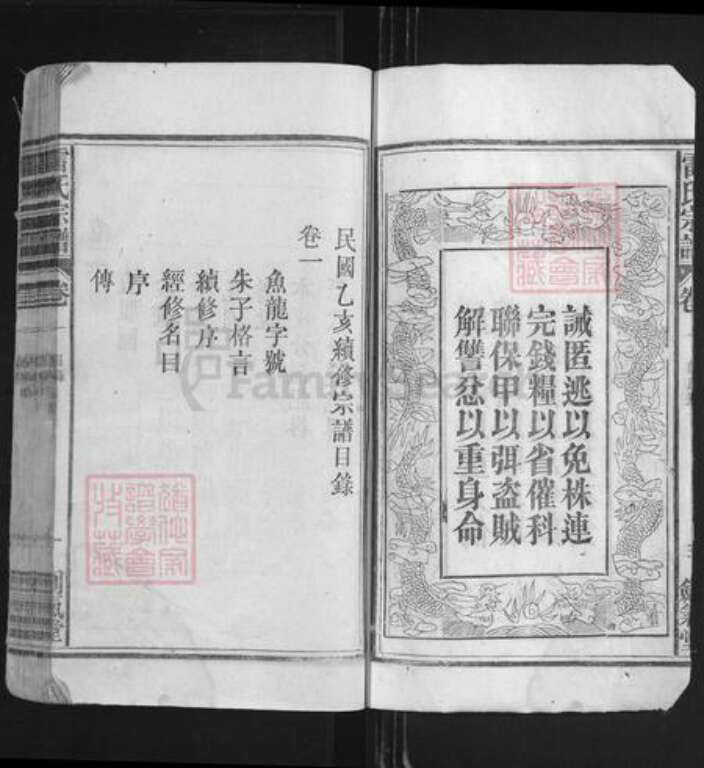 雷氏宗譜
誡匿逃以免株連
完錢糧以省催科
聯保甲以弭盜賊
解讐忿以重身命
民國乙亥續修宗譜目錄
卷一
魚龍字號
朱子格言
續修序
經修名目
序
傳
FamilySearch